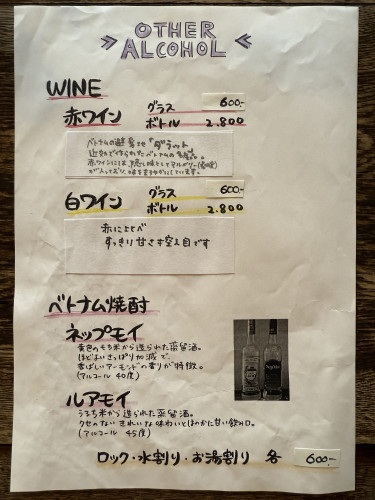 OTHER
ALCOHOL
WINE
赤ワイン グラス 600.-
ボトル 2.800
ベトナムの避暑地「ダラット」
近効で作られたベトナムの名産。
赤ワインには、隠し味としてマルベリー(桑の実)
が入っており、味をまろやかにしています。
白ワイン グラス 600.-
ボトル 2.800
赤にくらべ
すっきり甘さ控え目です
ベトナム焼酎
ネップモイ
黄色のもち米から造られた蒸留酒。
ほどよいさっぱり加減で、
香ばしいアーモンドの香りが特徴。
(アルコール 40度)
ルアモイ
うるち米から造られた蒸留酒。
クセのない きれいな味わいとほのかに甘い飲み口。
(アルコール 45度)
ロック・水割り・お湯割り 各 600.-